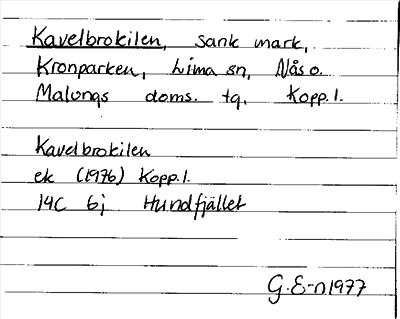 Kavelbrokilen, sank mark,
Kronparken, Lima sn, Nås o.
Malungs doms. tg, Kopp. l.
Kavelbrokilen
ek (1976) Kopp. l.
14C 6j Hundfjället
G. E-n 1977